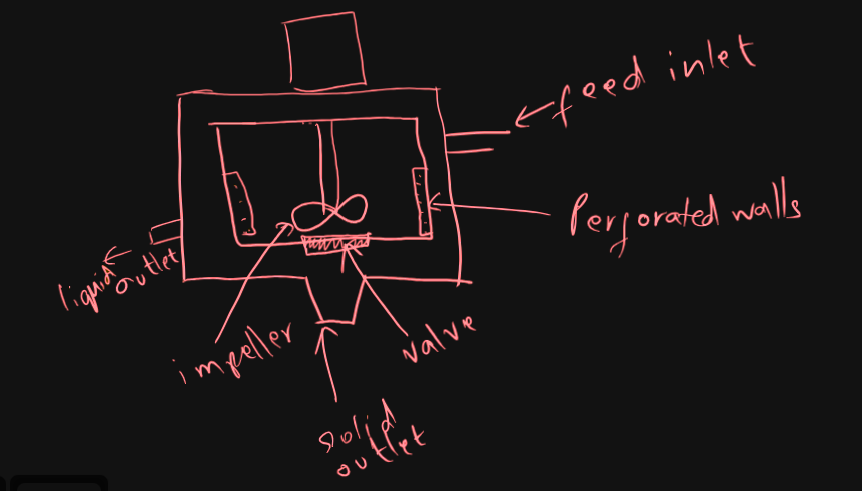 feed inlet
Perforated walls
liquid
outlet
impeller
valve
solid
outlet